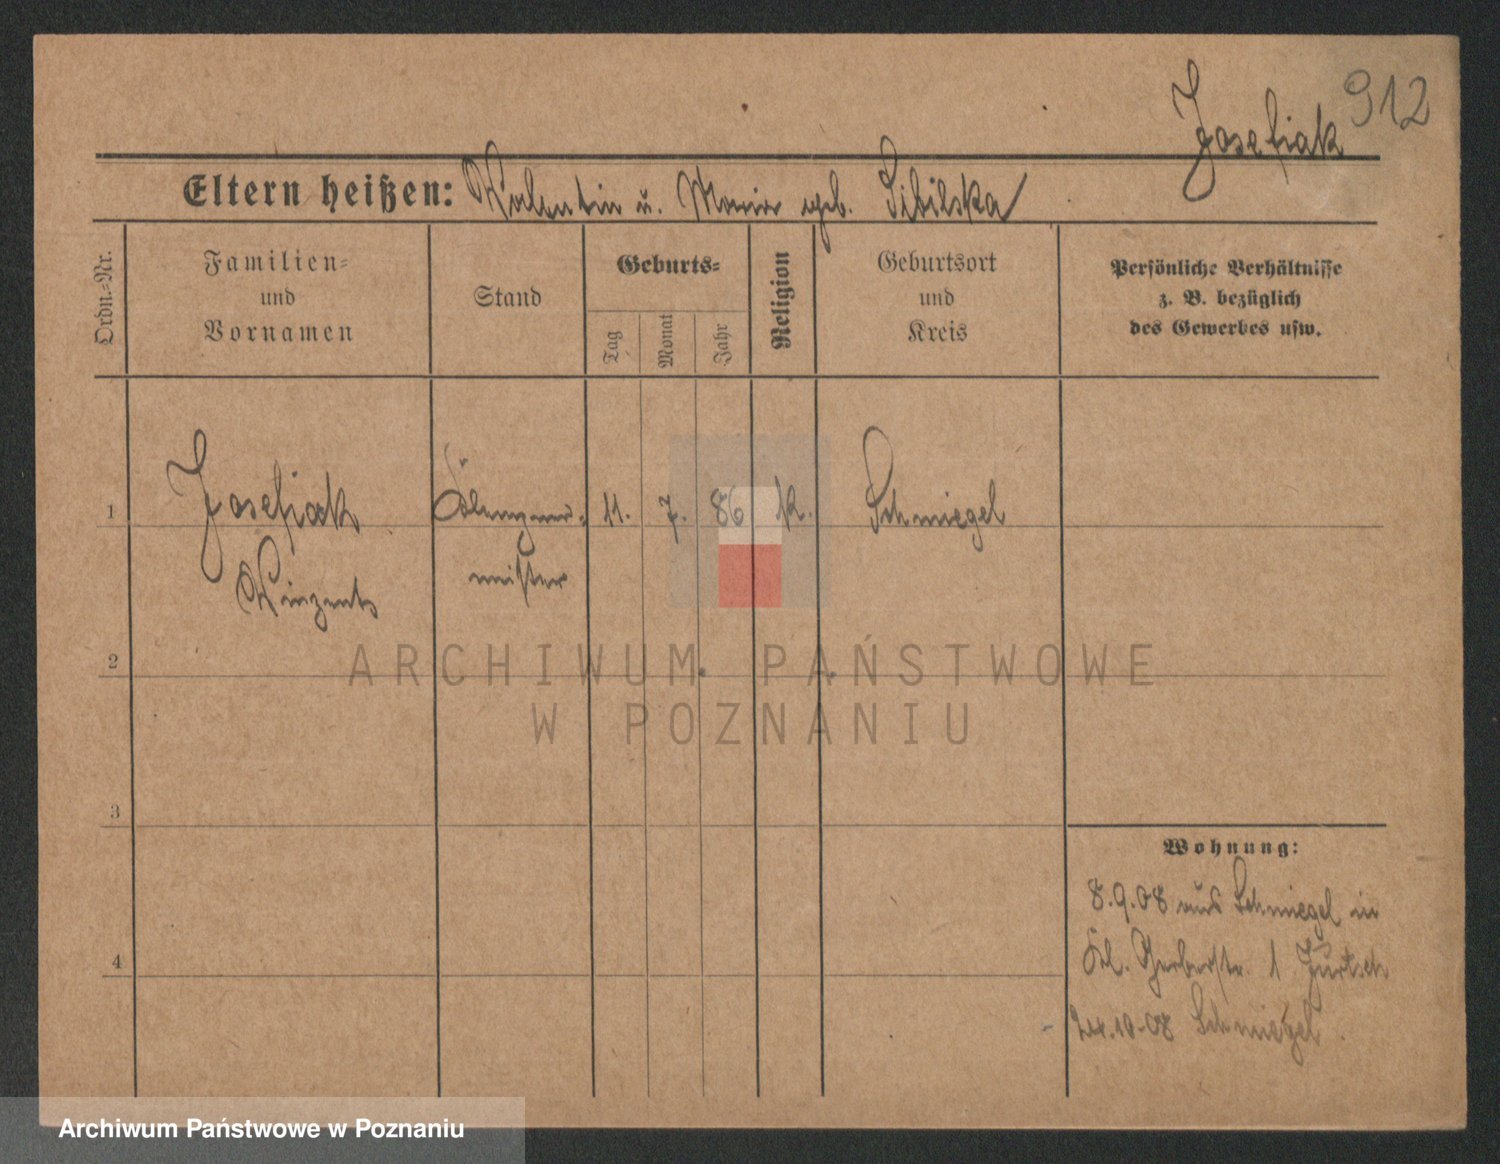 912
Josefiak
Eltern heißen: Valentin u. Maria geb. Sibilska
Ordn.-Nr.
Familien- und Vornamen
Stand
Geburts-
Tag
Monat
Jahr
Religion
Geburtsort und Kreis
Persönliche Verhältnisse
z. B. bezüglich
des Gewerbes usw.
1 Josefiak 11. 7. 86 k. Schmiegel
Vinzent meister
2
3
4
Wohnung:
8.9.08 aus Schmiegel in
Kl. Gerberstr. 1
24.10.08 Schmiegel
ARCHIWUM PAŃSTWOWE
W POZNANIU
Archiwum Państwowe w Poznaniu